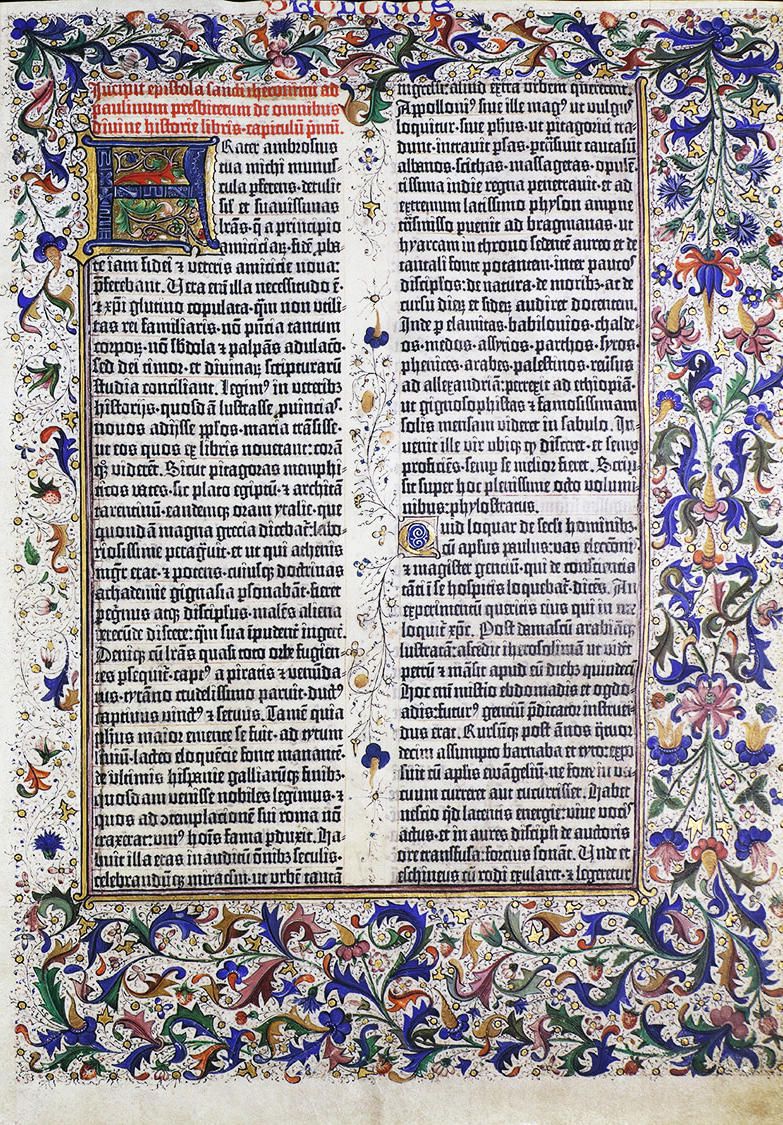 PROLOGUS
Incipit epistola sancti iheronimi ad
paulinum presbiterum de omnibus
diuine historie libris·capitulū pⁱmū.
Frater ambrosius
tua michi munus-
cula ꝑferens·detulit
sil' et suauissimas
lrās·q̄ a principio
amiciciaꝝ·fidē ꝓba-
te iam fidei ⁊ veteris amicicie noua:
p̄ferebant. Uera em̄ illa necessitudo ē·
⁊ xp̄i glutino copulata·qm̄ non vtili-
tas rei familiaris·nō p̄ncia tantum
corporꝫ·nō s̄bdola ⁊ palpās adulacō·
sed dei timor·et diuinaꝝ scripturarū
studia conciliant. Legim⁹ in veteribꝫ
historijs·quosdā lustrasse ꝓuincias·
nouos adijsse ppl̄os·maria trāsisse·
ut eos quos ex libris nouerant: corā
qꝫ viderēt. Sicut pitagoras memphi-
ticos vates·sic plato egiptū·⁊ architā
tarentinum·eandemqꝫ oram ytalie·que
quondā magna grecia dicebat̄: labo-
riosissime peragrauit·et ut qui athenis
mgr̄ erat·⁊ potens·cuiusqꝫ doctrinas
achademie gignasia ꝑsonabāt·fieret
peg̓nus atqꝫ discipulus·malēs aliena
verecūde discere: qm̄ sua īpudent̄ ingerē.
Deniqꝫ cū lrās quasi toto orbe fugien-
tes ꝑsequit̄·capt⁹ a piratis ⁊ venūda-
tus·tyrāno crudelissimo paruit·duct⁹
captiuus vinct⁹ ⁊ seruus. Tamē quia
ph̄us maior emente se fuit·ad tytum
liuiū·lacteo eloquēcie fonte manantē·
de vltimis hispanie galliarūqꝫ finibꝫ·
quosdam venisse nobiles legimus·⁊
quos ad ꝯtemplacionē sui roma nō
traxerat: vni⁹ hoīs fama ꝑduxit. Ha-
buit illa etas inauditū oīnibꝫ seculis·
celebrandūqꝫ miraculū·ut vrbē tantā
ingressi: aliud extra vrbem quererent.
Appolloni⁹ siue ille mag⁹ ut vulgus
loquitur·siue ph̄us·ut pitagorici tra-
dunt·intrauit ꝑsas·ꝑtr̄āsiuit caucasū·
albanos·scithas·massagetas·opulē-
tissima indie regna penetrauit·et ad
extremum latissimo physon ampne
tr̄āsmisso ꝑuenit ad bragmanas·ut
hyarcam in throno sedentē aureo et de
tantali fonte potantem·inter paucos
discip̄los·de natura·de moribꝫ·ac de
cursu dieꝝ et sideꝝ audiret docentem.
Inde ꝑ elamitas·babilonios·chalde-
os·medos·assyrios·parthos·syros·
phenices·arabes·palestinos·reūsus
ad allexandriā: perrexit ad ethiopiā·
ut gignosophistas ⁊ famosissimam
solis mensam videret in sabulo. In-
uenit ille vir vbiqꝫ qđ disceret·et semp̄
proficiēs·semp̄ se melior fieret. Scrip-
sit super hoc plenissime octo volumi-
nibus: phylostratus.
Quid loquar de sec̄li hominibꝫ·
cū apl̄us paulus: vas elecc̄onis·
⁊ magister genciū·qui de consciencia
tāti ī se hospicis loquebat̄·dicēs. An
experimentū queritis eius qui in me
loquit̄ xp̄c. Post damascū arabiāqꝫ
lustratā: ascēdit iherosolimā ut vidēt
petrū ⁊ māsit apud eū diebꝫ quindecī·
Hoc em̄ misterio ebdomadis et ogdo-
adis: futur⁹ genciū p̄dicator instruen-
dus erat. Rursūqꝫ post ānos q̄tuor-
decim assumpto barnaba et tyto: expo-
suit cū aplis ewāgeliū·ne forte in va-
cuum curreret aut cucurrisset. Habet
nescio qđ latentis energie: viue vocis
actus·et in aures discipl̄i de auctoris
ore transfusa: forcius sonat. Unde et
eschineus cū rodi exularet·⁊ legeretur